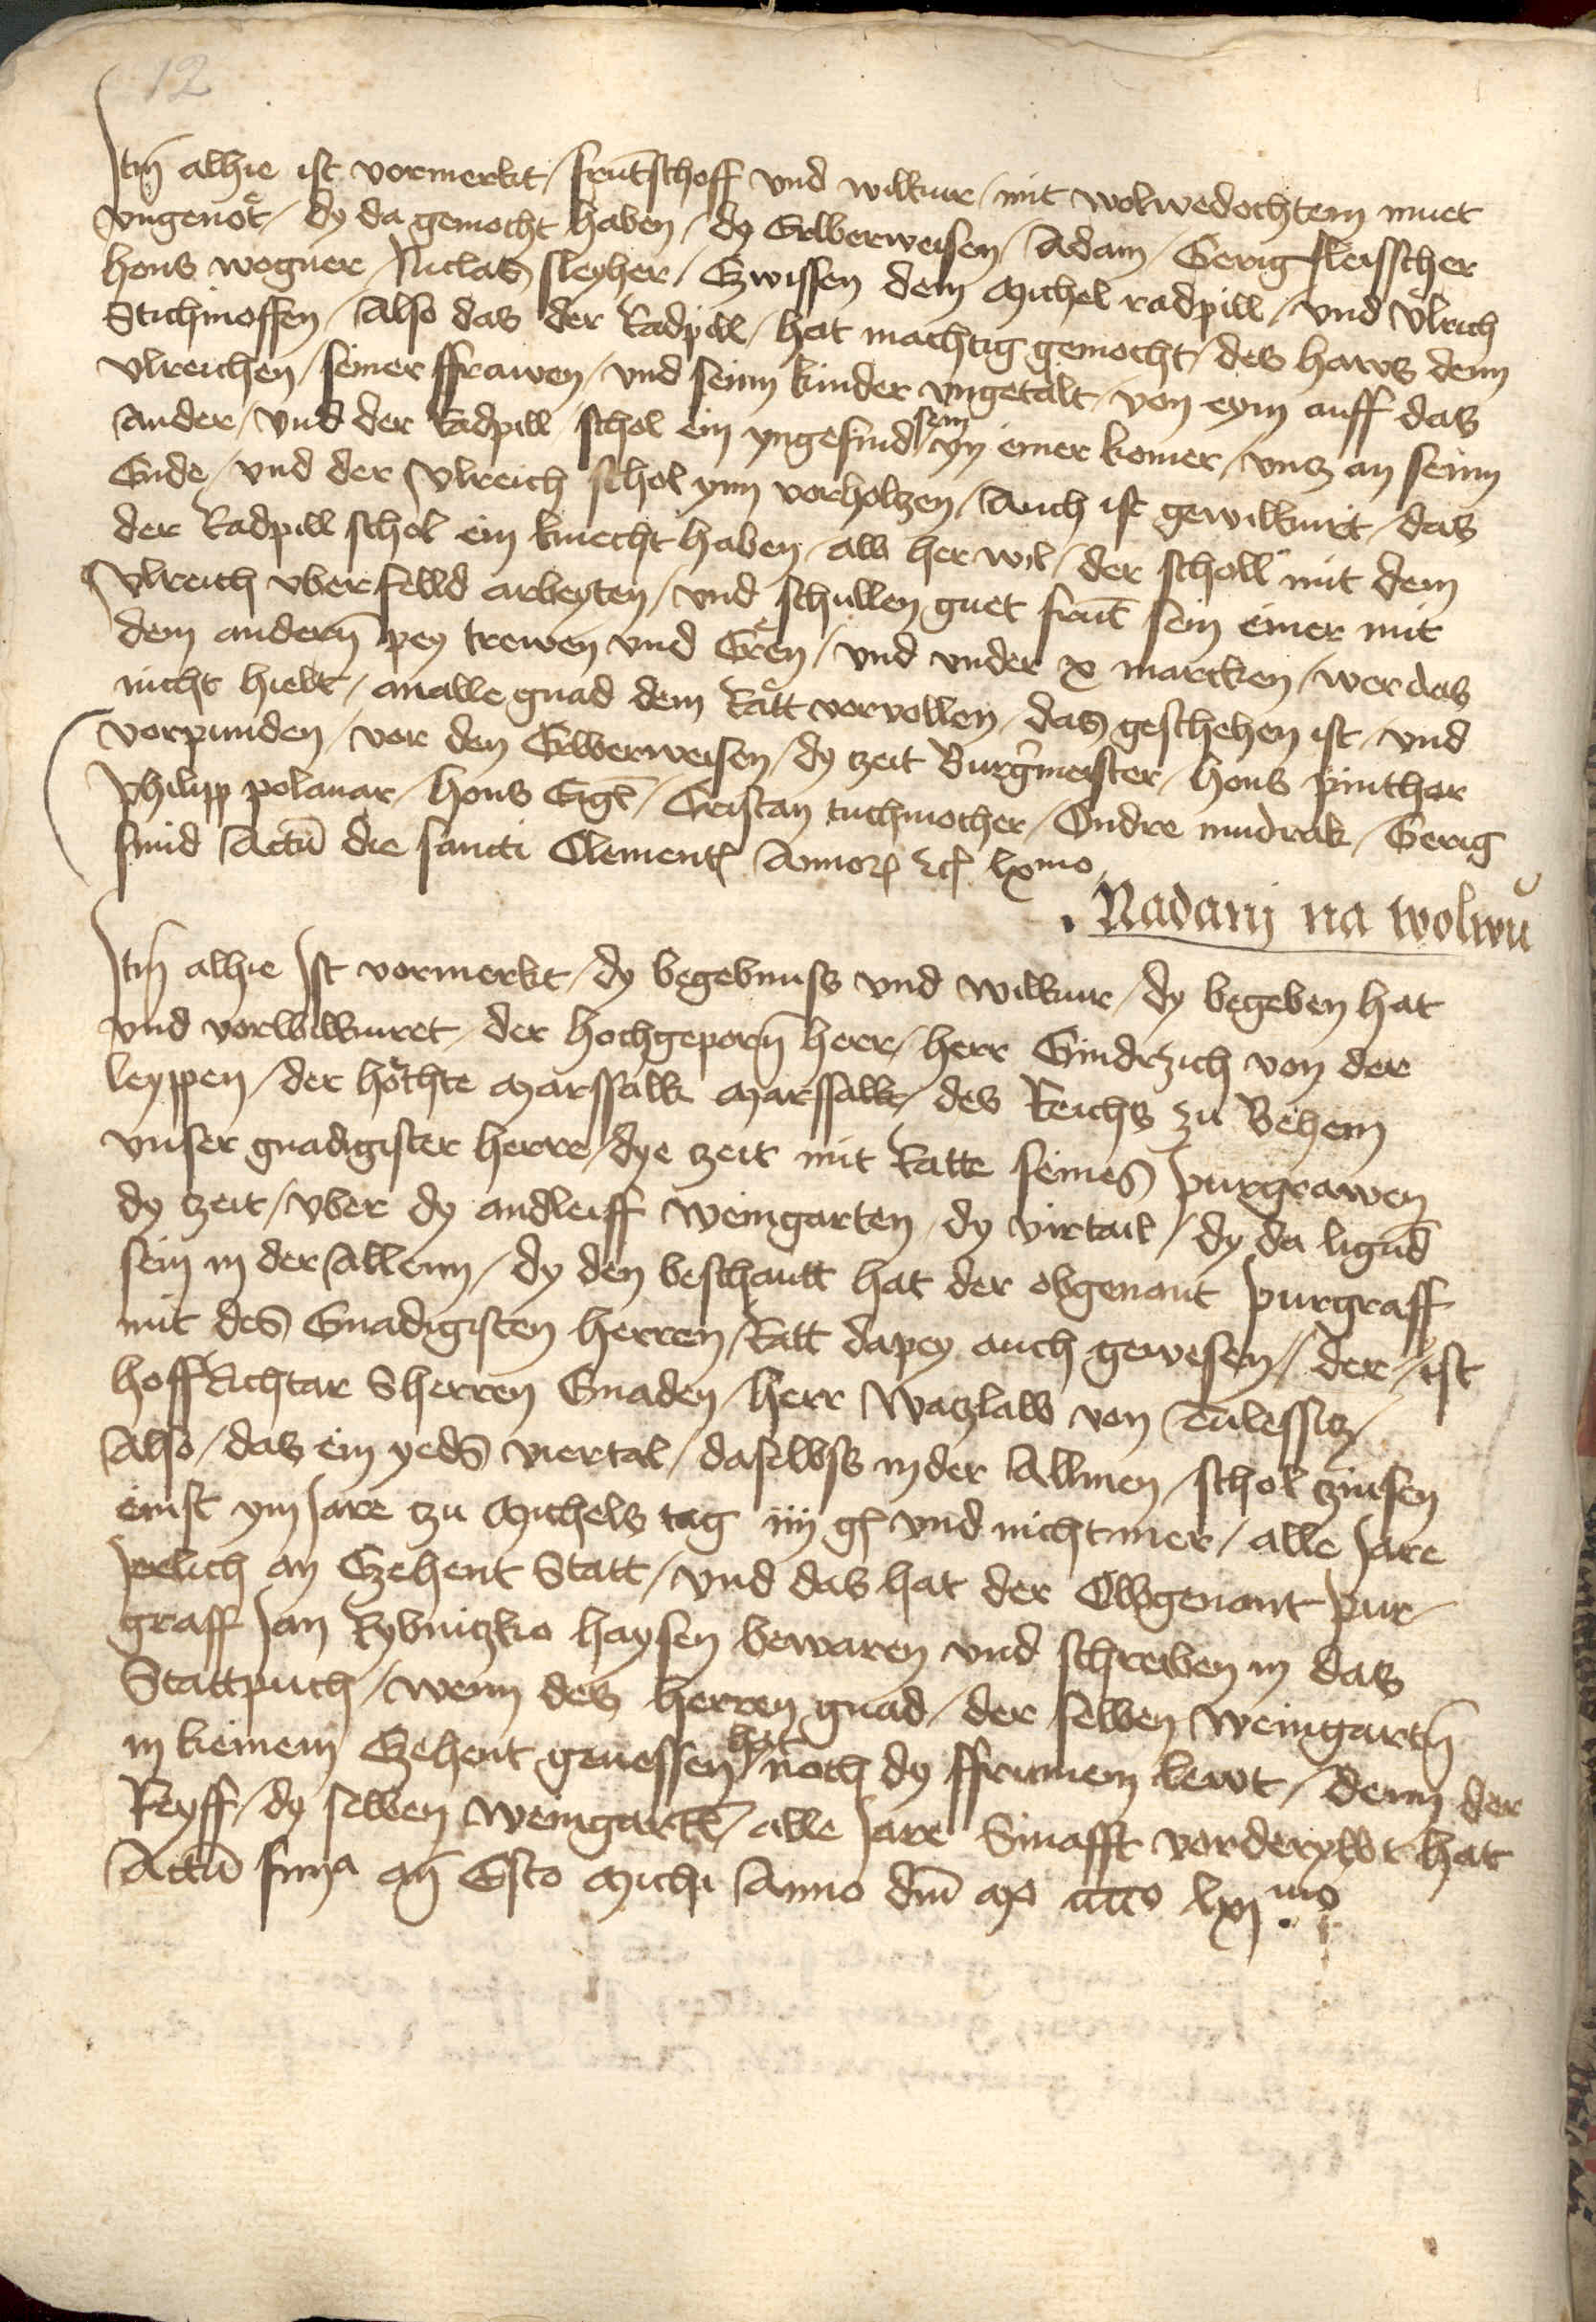 12
Itm̄ alhie ist vormerkt / frūtschoff vnd willkur / mit wolwedochtem muet
vngenöt / dy da gemocht haben / dy Erberweisen / Adam / Gerig fleisscher
hons wogner / Niclas sleyher / Czwissen dem Michel radpill / vnd vlrich
Stichinoffen / Also das der Radpill / hat machtig gemocht / des haws dem
vlreichen / seiner ffrawen / vnd seinn kinder vngetalt / von eym auff das
ander / vnd der Radpill schol ein yngesind sein yn einer komer / vncz an seinn
Ende / vnd der Vlreich schol ynn vorholzen / Auch ist gewillkurt / das
der Radpill schol ein knecht haben / alb her wil / der scholl mit dem
Vlreich vber felld arbeyten / vnd schullen guet frūt sein einer mit
dem andern̄ pey trewen vnd Eren / vnd vnder x marcken / wer das
nicht hielt / an alle gnad dem Rätt vorvollen / das geschehen ist / vnd
vorpunden / vor den Erberweisen / dy zeit Burgrmeister / hons pinthar
Philipp polanar / hons Eigl̄ / Cristan tuchmocher / Ondre mudrak / Gerig
smid Actū die sancti Clementꝭ Annorꝝ ꝛcꝭ lxmo
. Nadanj na wolwu
Itm̄ alhie Ist vormerkt / dy begebnuss vnd willkur / dy begeben hat
vnd vorwillkuret / der hochgeporn̄ herr / herr Gindrzich von der
leyppen / der höchte Marssallk Marssallk / des Reichs zu Behem
vnser gnadigister herre / dye zeit mit Ratte seines purgrawen
dy zeit / vber dy andleiff weingarten / dy virtail / dy da ligūd
sein in der Allenn / dy den beschautt hat der obgenant purgraff
mit des Gnadigisten herren / Ratt dapey auch gewesen / der / ist
hoff Richtar Sherren Gnaden / herr Waczlaw von Tulessicz /
Also / das ein yeds viertal / daselbss in der Allmen / schol zinsen
einst ym Jare zu Michels tag iiij gꝭ vnd nicht mer / alle Jare
Jerlich an Czehent Statt / vnd das hat der Obgenant pur-
graff Jan Rybniczko haysen bewaren vnd schreiben in das
Stattpuch / wenn des herren gnad / der selben weingartn̄
in keinem Czehent genessen hat / noch dy ffrumem lewt / denn der
Reyff / dy selben weingartē / alle Jare Smafft vorderybt hat
Actū finya an̄ Esto Michi Anno dm̄ Mo cccco lxjmo